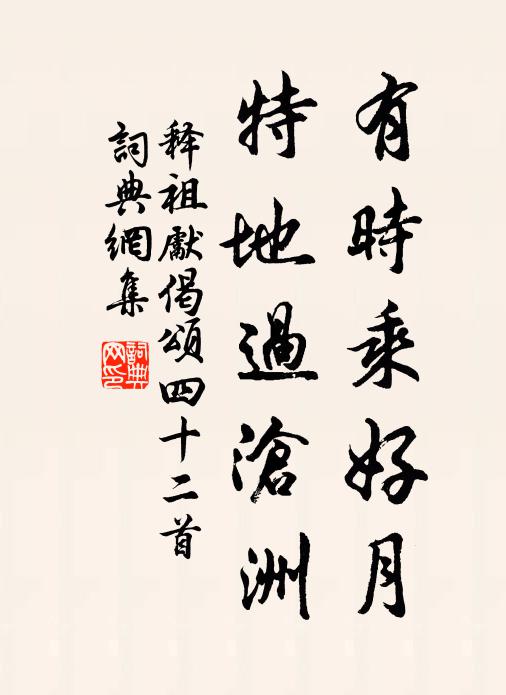 有時乘好月
特地過滄洲
释祖獻偈頌四十二首
詞典網集
詞典網印